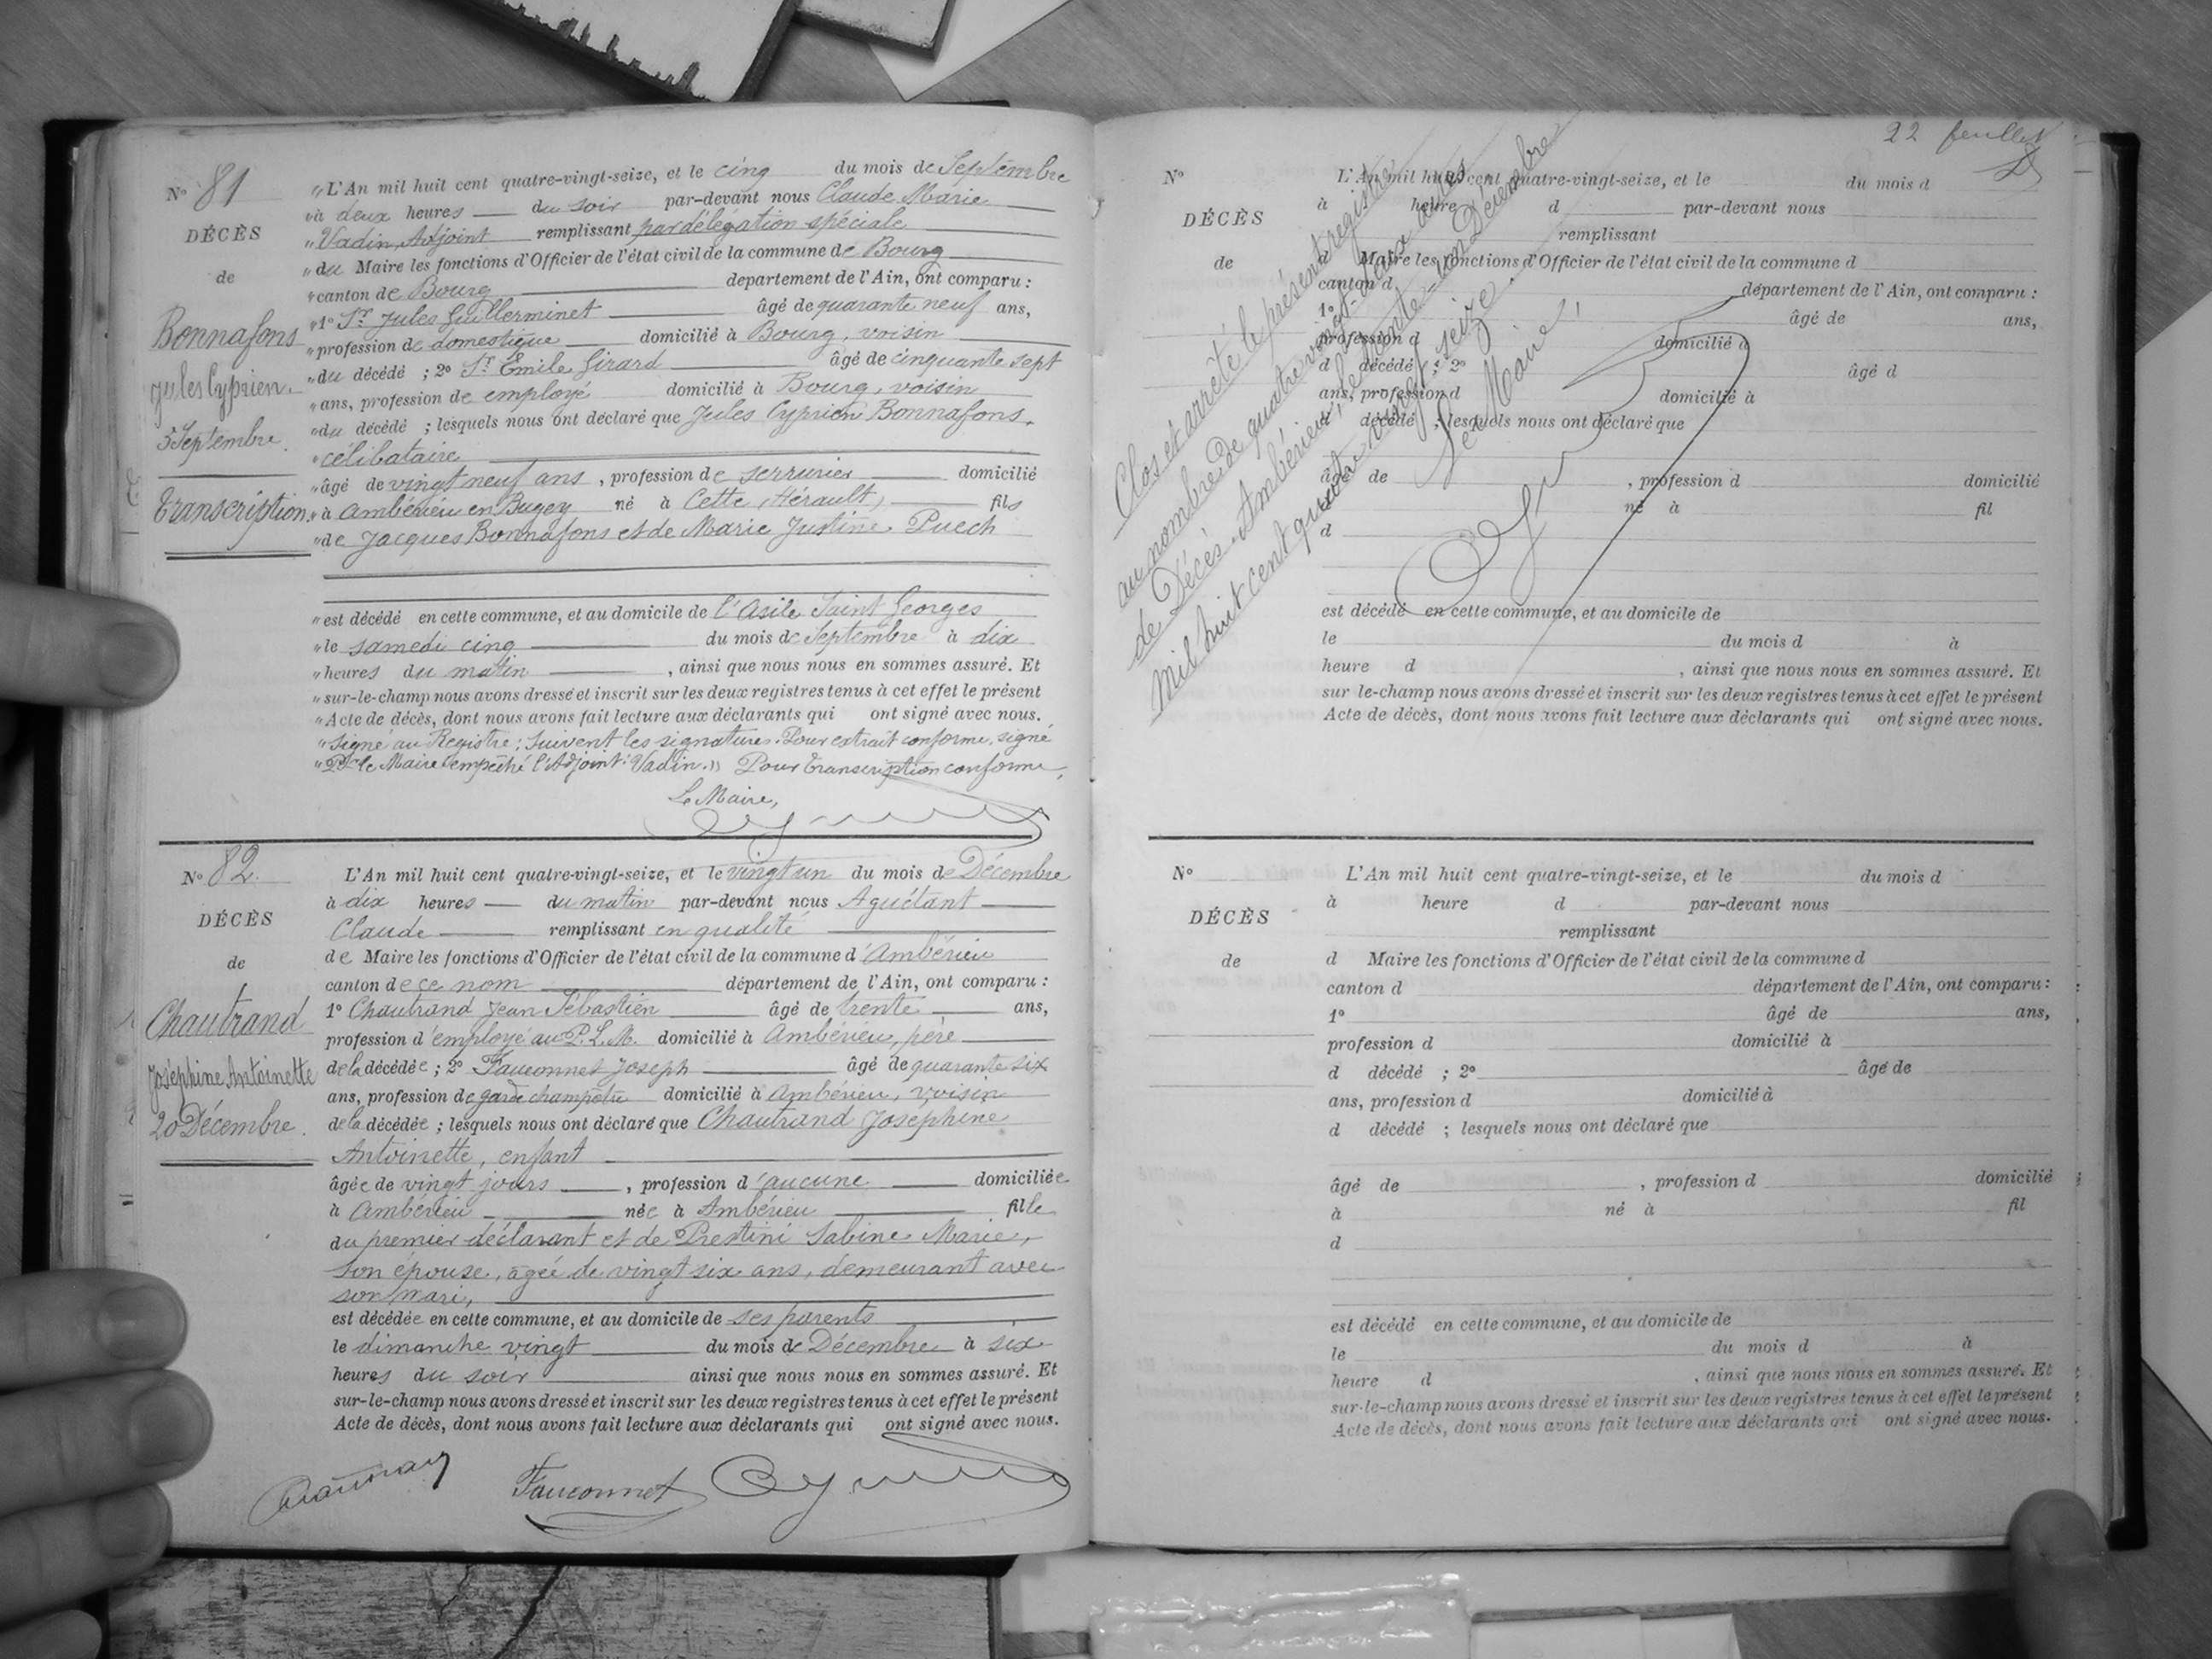 N° 81
DÉCÈS
de
Bonnafons
Jules Cyprien.
5 Septembre.
Transcription.
"L'An mil huit cent quatre-vingt-seize, et le cinq du mois de Septembre
"à deux heures du soir par-devant nous Claude Marie
"Vadin, Adjoint remplissant par délégation spéciale
"du Maire les fonctions d'Officier de l'état civil de la commune de Bourg
"canton de Bourg département de l'Ain, ont comparu :
"1° Sr Jules Guillerminet âgé de quarante neuf ans,
"profession de domestique domicilié à Bourg, voisin
"du décédé ; 2° Sr Émile Girard âgé de cinquante sept
"ans, profession de employé domicilié à Bourg, voisin
"du décédé ; lesquels nous ont déclaré que Jules Cyprien Bonnafons,
"célibataire
"âgé de vingt neuf ans, profession de serrurier domicilié
"à Ambérieu en Bugey né à Cette (Hérault) fils
"de Jacques Bonnafons et de Marie Justine Puech
"est décédé en cette commune, et au domicile de l'Asile Saint Georges
"le samedi cinq du mois de Septembre à dix
"heures du matin, ainsi que nous nous en sommes assuré. Et
"sur-le-champ nous avons dressé et inscrit sur les deux registres tenus à cet effet le présent
"Acte de décès, dont nous avons fait lecture aux déclarants qui ont signé avec nous.
"Signé au Registre : Suivent les signatures. Pour extrait conforme, signé
"Pr le Maire empêché l'Adjoint : Vadin." Pour transcription conforme,
Le Maire,
N° 82.
DÉCÈS
de
Chautrand
Joséphine Antoinette
20 Décembre.
L'An mil huit cent quatre-vingt-seize, et le vingt un du mois de Décembre
à dix heures du matin par-devant nous Aguétant
Claude remplissant en qualité
de Maire les fonctions d'Officier de l'état civil de la commune d'Ambérieu
canton de ce nom département de l'Ain, ont comparu :
1° Chautrand Jean Sébastien âgé de trente ans,
profession d'employé au P.L.M. domicilié à Ambérieu, père
de la décédée ; 2° Fauconnet Joseph âgé de quarante six
ans, profession de garde champêtre domicilié à Ambérieu, voisin
de la décédée ; lesquels nous ont déclaré que Chautrand Joséphine
Antoinette, enfant
âgée de vingt jours, profession d'aucune domiciliée
à Ambérieu née à Ambérieu fille
du premier déclarant et de Prestini Sabine Marie,
son épouse, âgée de vingt six ans, demeurant avec
son mari,
est décédée en cette commune, et au domicile de ses parents
le dimanche vingt du mois de Décembre à six
heures du soir ainsi que nous nous en sommes assuré. Et
sur-le-champ nous avons dressé et inscrit sur les deux registres tenus à cet effet le présent
Acte de décès, dont nous avons fait lecture aux déclarants qui ont signé avec nous.
Fauconnet
22 feuillets
N°
DÉCÈS
de
L'An mil huit cent quatre-vingt-seize, et le du mois d
à heure d par-devant nous
remplissant
d Maire les fonctions d'Officier de l'état civil de la commune d
canton d département de l'Ain, ont comparu :
1° âgé de ans,
profession d domicilié à
d décédé ; 2° âgé d
ans, profession d domicilié à
d décédé ; lesquels nous ont déclaré que
âgé de , profession d domicilié
né à fil
d
est décédé en cette commune, et au domicile de
le du mois d à
heure d , ainsi que nous nous en sommes assuré. Et
sur le-champ nous avons dressé et inscrit sur les deux registres tenus à cet effet le présent
Acte de décès, dont nous avons fait lecture aux déclarants qui ont signé avec nous.
Clos et arrêté le présent registre
au nombre de quatre vingt-deux actes
de Décès. Ambérieu, le trente-un Décembre
mil huit cent quatre vingt seize.
Le Maire,
N°
DÉCÈS
de
L'An mil huit cent quatre-vingt-seize, et le du mois d
à heure d par-devant nous
remplissant
d Maire les fonctions d'Officier de l'état civil de la commune d
canton d département de l'Ain, ont comparu :
1° âgé de ans,
profession d domicilié à
d décédé ; 2° âgé de
ans, profession d domicilié à
d décédé ; lesquels nous ont déclaré que
âgé de , profession d domicilié
à né à fil
d
est décédé en cette commune, et au domicile de
le du mois d à
heure d , ainsi que nous nous en sommes assuré. Et
sur-le-champ nous avons dressé et inscrit sur les deux registres tenus à cet effet le présent
Acte de décès, dont nous avons fait lecture aux déclarants qui ont signé avec nous.